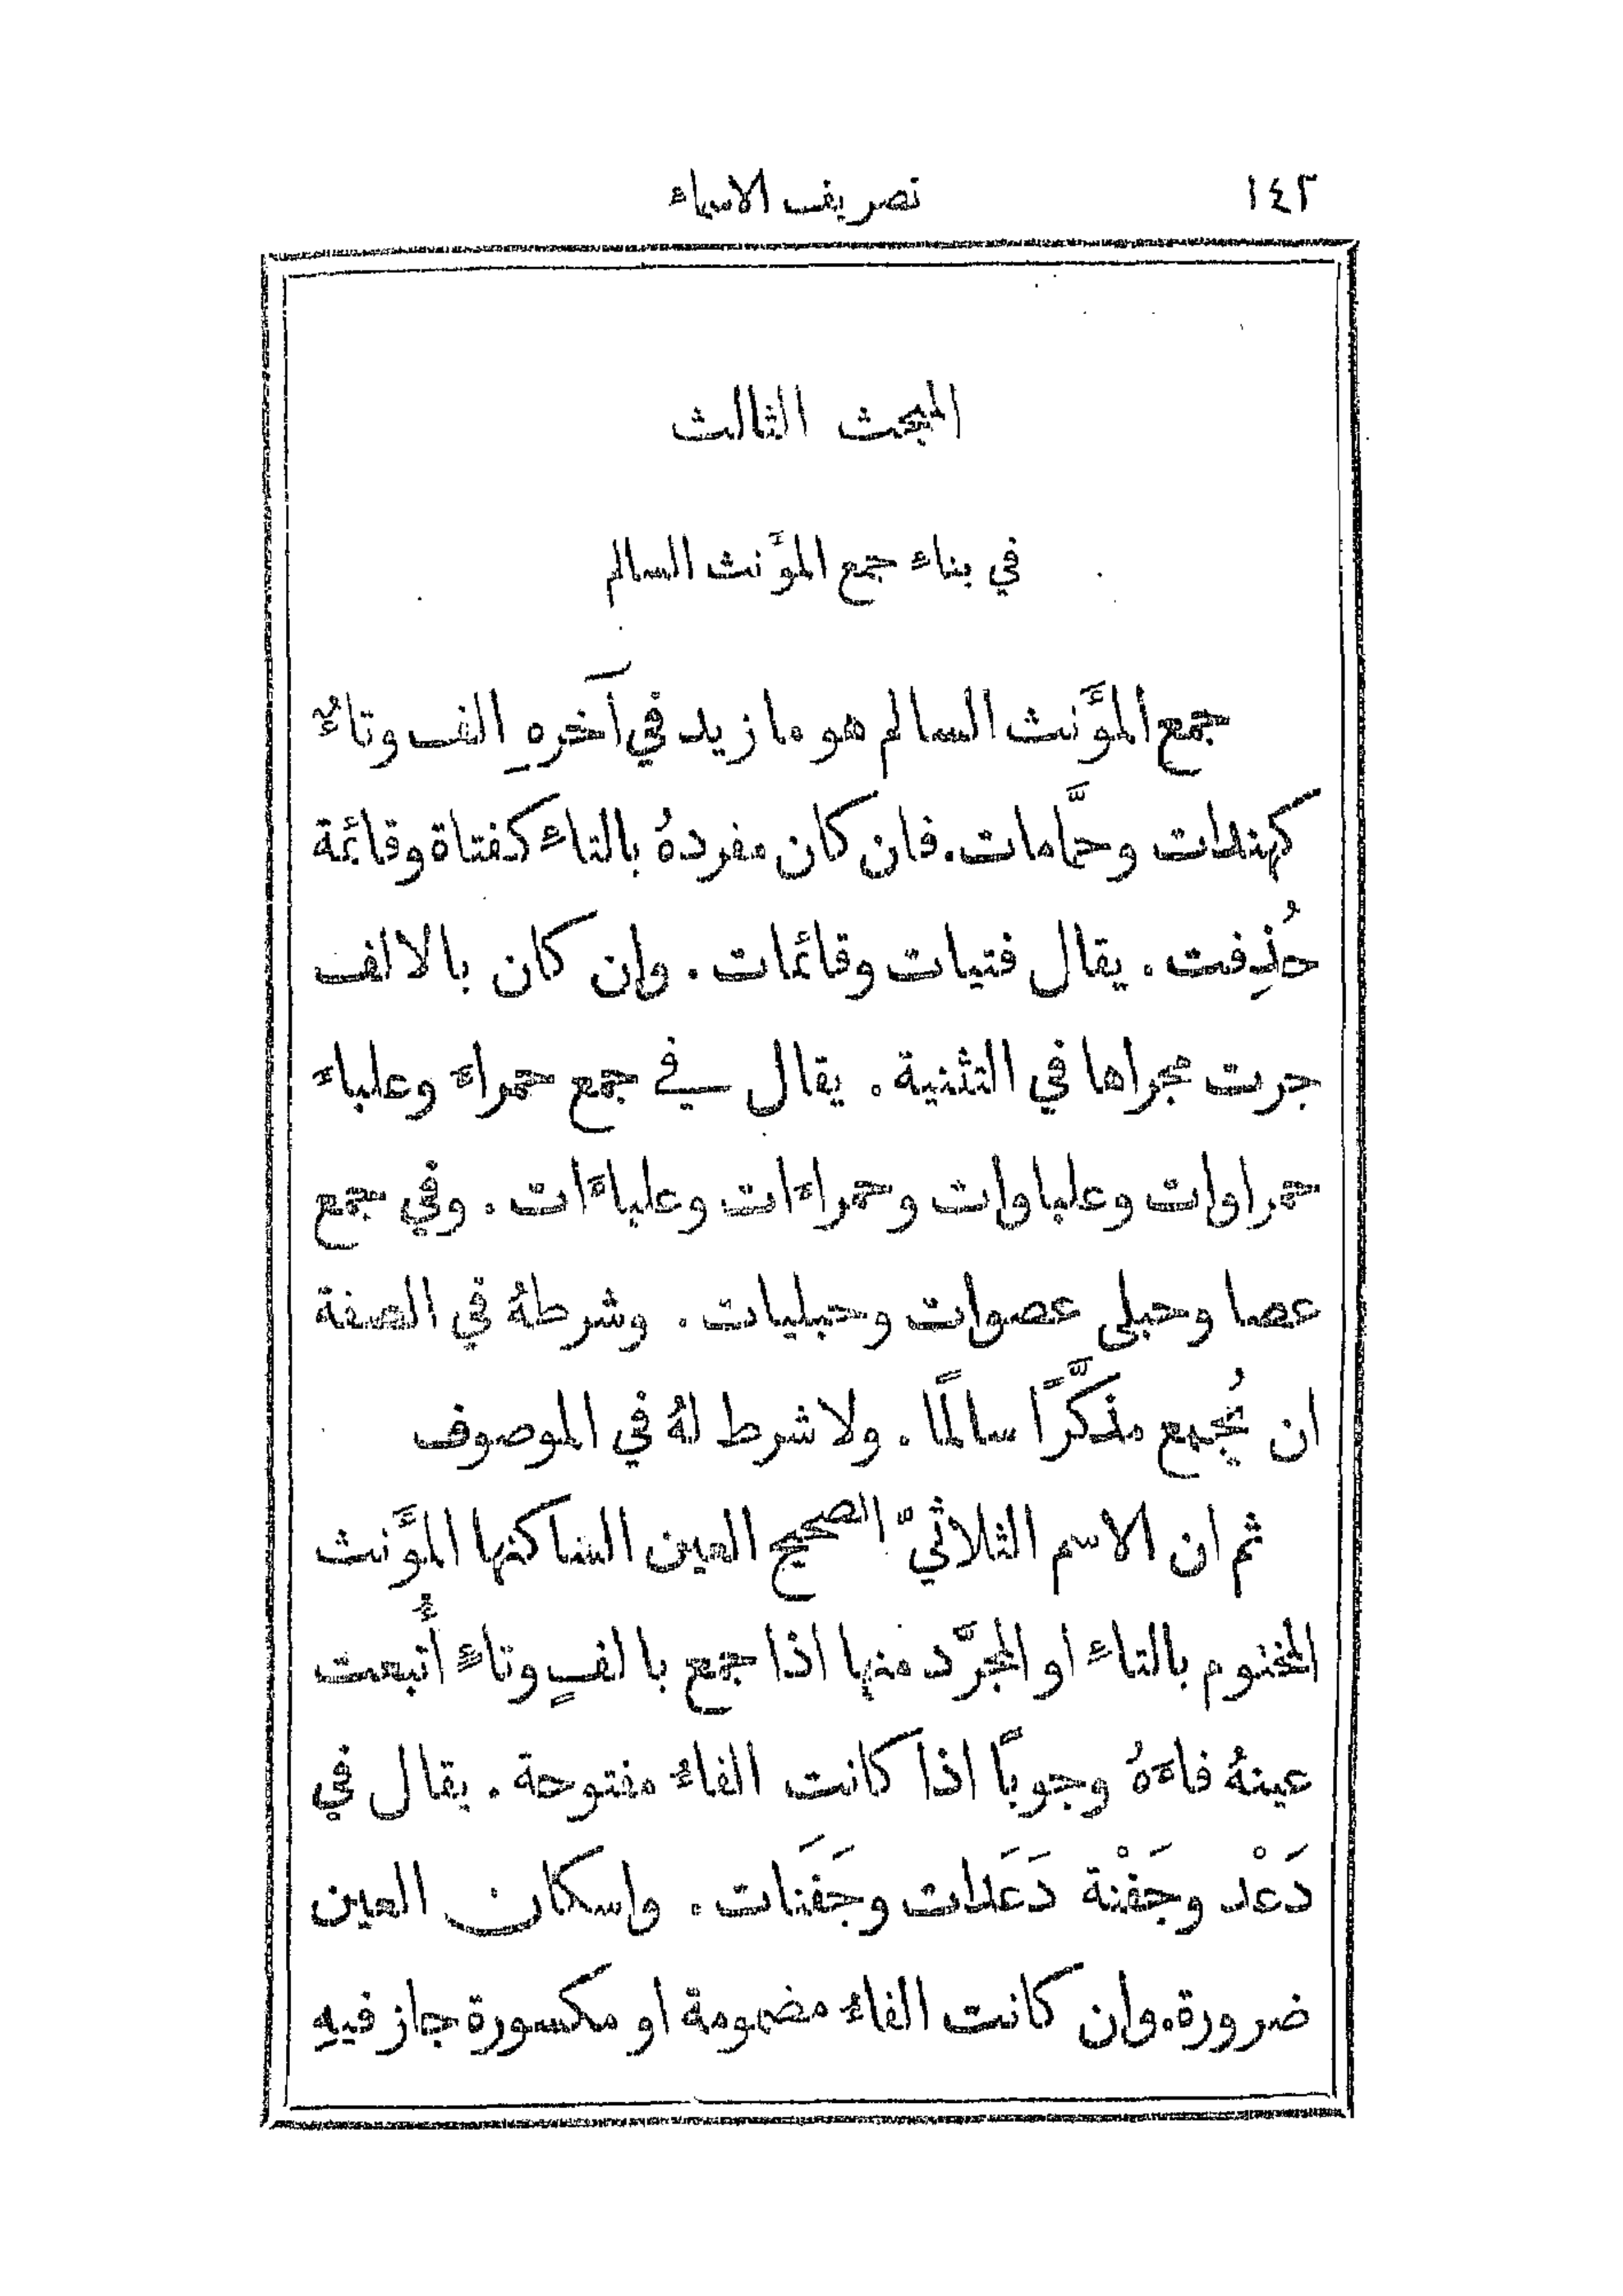 ١٤٢ تصريف الاسماء
المبحث الثالث
في بناء جمع المؤَنث السالم
جمع المؤَنث السالم هو ما زيد في آخرهِ الف وتاءٌ
كهندات وحمَّامات. فان كان مفردهُ بالتاء كفتاة وقائمة
حُذِفت. يقال فتيات وقائمات. وإن كان بالالف
جرت مجراها في التثنية. يقال في جمع حمراءَ وعلباء
حمراوات وعلباوات وحمراءات وعلباءَات. وفي جمع
عصا وحبلى عصوات وحبليات. وشرطهُ في الصفة
ان يُجمع مذكَّرًا سالمًا. ولا شرط لهُ في الموصوف
ثم ان الاسم الثلاثيّ الصحيح العين الساكنها المؤَنث
المختوم بالتاء او المجرَّد منها اذا جمع بالفٍ وتاءٍ أُتبعت
عينهُ فاءَهُ وجوبًا اذا كانت الفاءُ مفتوحة. يقال في
دَعْد وجَفْنة دَعَدات وجَفَنات. وإسكان العين
ضرورة. وإن كانت الفاءُ مضمومة او مكسورة جاز فيهِ